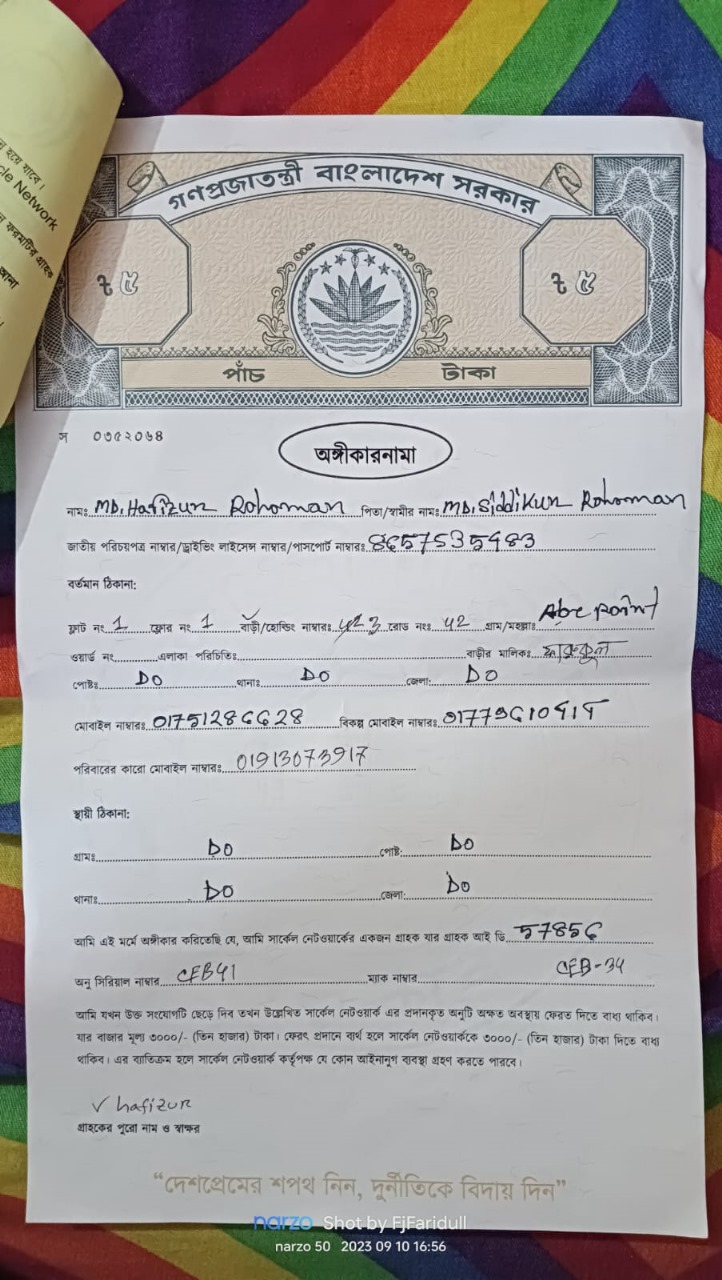 হয়ে যাবে।
cle Network
ফরমটির গ্রাহক
গণপ্রজাতন্ত্রী বাংলাদেশ সরকার
৳ ৫ ৳ ৫
পাঁচ টাকা
স ০৩৫২০৬৪
অঙ্গীকারনামা
নামঃ MD, Hafizun Rohoman পিতা/স্বামীর নাম: MD, Siddikun Rohoman
জাতীয় পরিচয়পত্র নাম্বার/ড্রাইভিং লাইসেন্স নাম্বার/পাসপোর্ট নাম্বারঃ
বর্তমান ঠিকানা:
ফ্লাট নং 1 ফ্লোর নং 1 বাড়ী/হোল্ডিং নাম্বারঃ রোড নংঃ 42 গ্রাম/মহল্লাঃ Abc point
ওয়ার্ড নং এলাকা পরিচিতিঃ বাড়ীর মালিকঃ
পোষ্টঃ DO থানাঃ DO জেলা: DO
মোবাইল নাম্বারঃ বিকল্প মোবাইল নাম্বারঃ
পরিবারের কারো মোবাইল নাম্বারঃ 01913073917
স্থায়ী ঠিকানা:
গ্রামঃ DO পোষ্ট: DO
থানাঃ DO জেলা: DO
আমি এই মর্মে অঙ্গীকার করিতেছি যে, আমি সার্কেল নেটওয়ার্কের একজন গ্রাহক যার গ্রাহক আই ডি 57856
অনু সিরিয়াল নাম্বার CEB41 ম্যাক নাম্বার CEB-34
আমি যখন উক্ত সংযোগটি ছেড়ে দিব তখন উল্লেখিত সার্কেল নেটওয়ার্ক এর প্রদানকৃত অনুটি অক্ষত অবস্থায় ফেরত দিতে বাধ্য থাকিব।
যার বাজার মূল্য ৩০০০/- (তিন হাজার) টাকা। ফেরৎ প্রদানে ব্যর্থ হলে সার্কেল নেটওয়ার্ককে ৩০০০/- (তিন হাজার) টাকা দিতে বাধ্য
থাকিব। এর ব্যতিক্রম হলে সার্কেল নেটওয়ার্ক কর্তৃপক্ষ যে কোন আইনানুগ ব্যবস্থা গ্রহণ করতে পারবে।
hafizur
গ্রাহকের পুরো নাম ও স্বাক্ষর
“দেশপ্রেমের শপথ নিন, দুর্নীতিকে বিদায় দিন”
narzo Shot by FjFaridull
narzo 50 2023 09 10 16:56